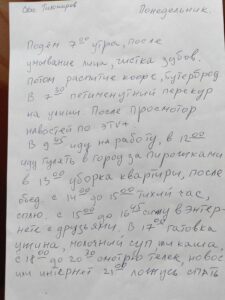 Сви Тихомиров
Понедельник.
Подём 7⁰⁰ утра, после
умывание лица, чистка зубов.
Потом распитие кофе, бутерброд
В 7³⁰ петименутный перекур
на улици. После просмотор
навостей по этvx.
В 9⁴⁵ иду на работу, в 12⁰⁰
иду гулять в город за пирожками
в 13⁰⁰ уборка квартири, после
обед. с 14⁰⁰ до 15⁰⁰ тихий час,
сплю. с 15⁰⁰ до 16⁴⁵ сижу в энтер-
нете с друзьями, В 17⁰⁰ гатовка
ужина, молочный суп, или каша,
с 18⁰⁰ до 20³⁰ смотрю телек, новос
им интернет 21⁰⁰ ложусь спать